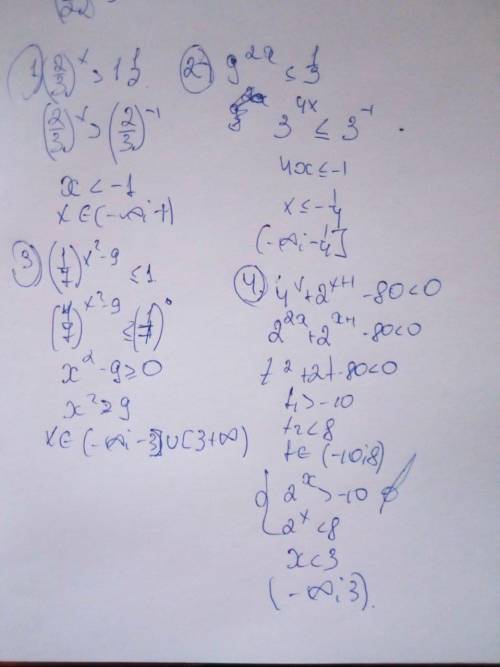 22
1) (2/3)^x > 1 1/2
(2/3)^x > (2/3)^-1
x < -1
x ∈ (-∞; -1)
2) 9^2x ≤ 1/3
3^4x ≤ 3^-1
4x ≤ -1
x ≤ -1/4
(-∞; -1/4]
3) (1/7)^x²-9 ≤ 1
(1/7)^x²-9 ≤ (1/7)^0
x² - 9 ≥ 0
x² ≥ 9
x ∈ (-∞; -3] ∪ [3 +∞)
4. 4^x + 2^x+1 - 80 < 0
2^2x + 2^x+1 - 80 < 0
t² + 2t - 80 < 0
t1 > -10
t2 < 8
t ∈ (-10; 8)
2^x > -10 ∅
2^x < 8
x < 3
(-∞; 3).